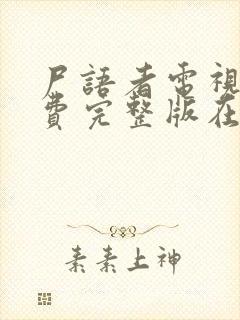 尸語者電視
費完整版在
素素上神